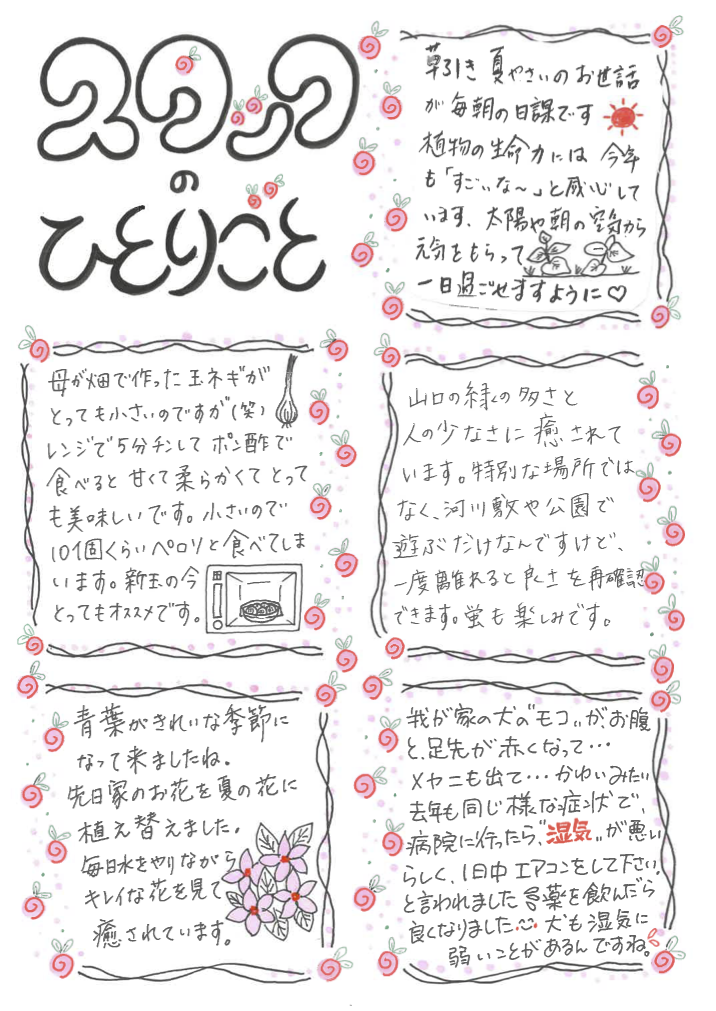 スタッフ
の
ひとりごと
草引き 夏やさいのお世話
が毎朝の日課です
植物の生命力には 今年
も「すごいな〜」と感心して
います、太陽や朝の空気から
元気をもらって
一日過ごせますように♡
母が畑で作った玉ネギが
とっても小さいのですが(笑)
レンジで5分チンして ポン酢で
食べると 甘くて柔らかくてとって
も美味しいです。小さいので
10個くらいペロリと食べてしま
います。新玉の今
とってもオススメです。
山口の緑の多さと
人の少なさに癒されて
います。特別な場所では
なく、河川敷や公園で
遊ぶだけなんですけど、
一度離れると良さを再確認
できます。蛍も楽しみです。
青葉がきれいな季節に
なって来ましたね。
先日家のお花を夏の花に
植え替えました。
毎日水をやりながら
キレイな花を見て
癒されています。
我が家の犬の"モコ"が、お腹
と、足先が赤くなって…
メヤニも出て…かゆいみたい
去年も同じ様な症状で、
病院に行ったら、"湿気"が悪い
らしく、1日中 エアコンをして下さい
と言われました 薬を飲んだら
良くなりました 犬も湿気に
弱いことがあるんですね。